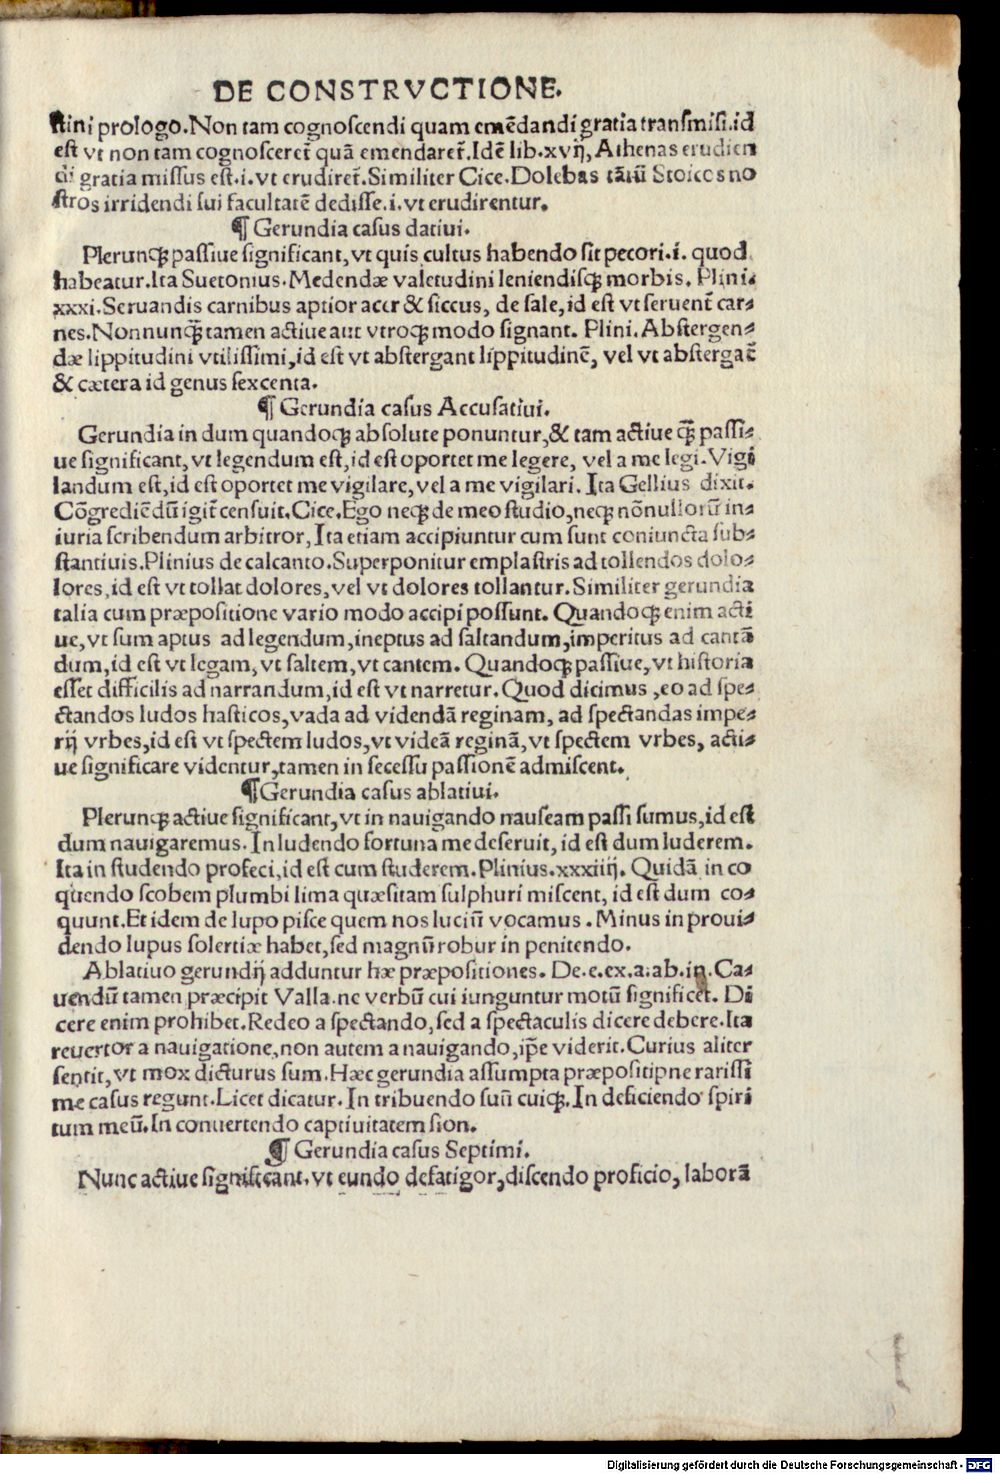 DE CONSTRVCTIONE.
stini prologo.Non tam cognoscendi quam emēdandi gratia transmisi.id
est vt non tam cognosceret̄ quā emendaret̄.Idē lib.xvij, Athenas erudien
di gratia missus est.i.vt erudiret̄.Similiter Cice.Dolebas tātū Stoicos no
stros irridendi sui facultatē dedisse.i.vt erudirentur.
¶ Gerundia casus datiui.
Plerunq̢ passiue significant, vt quis cultus habendo sit pecori.i. quod
habeatur.Ita Suetonius.Medendæ valetudini leniendisq̢ morbis. Plini.
xxxi.Seruandis carnibus aptior acer & siccus, de sale, id est vt seruent̄ car⸗
nes.Nonnunq̢̄ tamen actiue aut vtroq̢ modo signant. Plini. Abstergen⸗
dæ lippitudini vtilissimi, id est vt abstergant lippitudinē, vel vt abstergāt̄
& cætera id genus sexcenta.
¶ Gerundia casus Accusatiui.
Gerundia in dum quandoq̢ absolute ponuntur, & tam actiue q̢̄ passi⸗
ue significant, vt legendum est, id est oportet me legere, vel a me legi.Vigi
landum est, id est oportet me vigilare, vel a me vigilari. Ita Gellius dixit.
Cōgrediēdū igit̄ censuit.Cice.Ego neq̢ de meo studio, neq̢ nōnullorū in⸗
iuria scribendum arbitror, Ita etiam accipiuntur cum sunt coniuncta sub⸗
stantiuis.Plinius de calcanto.Superponitur emplastris ad tollendos dolo⸗
lores, id est vt tollat dolores, vel vt dolores tollantur.Similiter gerundia
talia cum præpositione vario modo accipi possunt. Quandoq̢ enim acti
ue, vt sum aptus ad legendum, ineptus ad saltandum, imperitus ad cantā
dum, id est vt legam, vt saltem, vt cantem. Quandoq̢ passiue, vt historia
esset difficilis ad narrandum, id est vt narretur. Quod dicimus , eo ad spe⸗
ctandos ludos hasticos, vada ad videndā reginam, ad spectandas impe⸗
rij vrbes, id est vt spectem ludos, vt videā reginā, vt spectem vrbes, acti⸗
ue significare videntur, tamen in secessu passionē admiscent.
¶Gerundia casus ablatiui.
Plerunq̢ actiue significant, vt in nauigando nauseam passi sumus, id est
dum nauigaremus. In ludendo fortuna me deseruit, id est dum luderem.
Ita in studendo profeci, id est cum studerem.Plinius.xxxiiij. Quidā in co
quendo scobem plumbi lima quæsitam sulphuri miscent, id est dum co⸗
quunt.Et idem de lupo pisce quem nos luciū vocamus . Minus in proui⸗
dendo lupus solertiæ habet, sed magnū robur in penitendo.
Ablatiuo gerundij adduntur hæ præpositiones. De.e.ex.a.ab.in. Ca⸗
uendū tamen præcipit Valla.ne verbū cui iunguntur motū significet. Di
cere enim prohibet.Redeo a spectando, sed a spectaculis dicere debere.Ita
reuertor a nauigatione, non autem a nauigando, ip̄e viderit.Curius aliter
sentit, vt mox dicturus sum.Hæc gerundia assumpta præpositipne rarissi
me casus regunt.Licet dicatur. In tribuendo suū cuiq̢. In deficiendo spiri
tum meū.In conuertendo captiuitatem sion.
¶ Gerundia casus Septimi.
Nunc actiue significant. vt eundo defatigor, discendo proficio, laborā
Digitalisierung gefördert durch die Deutsche Forschungsgemeinschaft - DFG